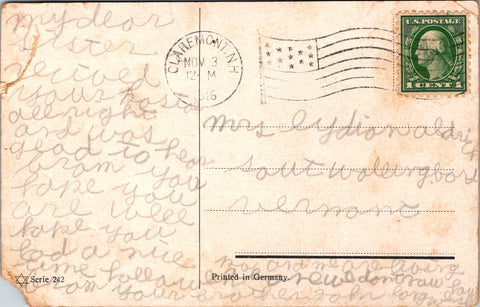 my dear
Sister
recived
your postal
all right
and was
glad to hear
from you
hope you
are well
hope you
had a nice
time hallow
from your brother
CLAREMONT, N.H.
NOV 3
12-M
1916
U.S. POSTAGE
1 CENT 1
Mrs Lydia Aldrich
South Wallingford
Vermont
Serie 242
Printed in Germany.